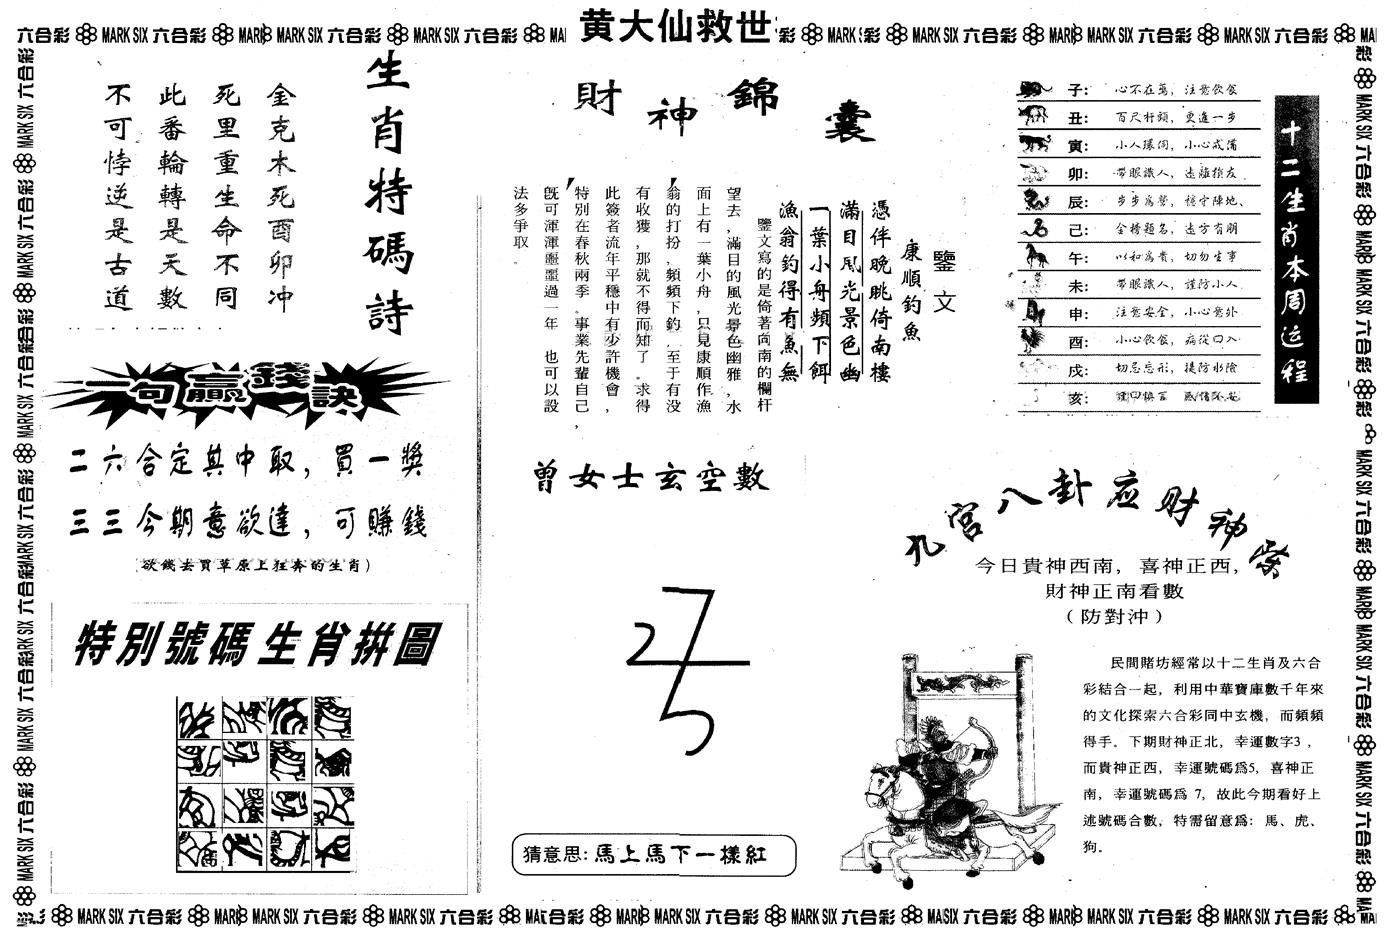 黄大仙救世
生肖特碼詩
金克木死酉卯冲
死里重生命不同
此番輪轉是天數
不可悖逆是古道
一句贏錢訣
二六合定其中取，買一獎
三三今期意欲達，可賺錢
（欲錢去買草原上狂奔的生肖）
特別號碼生肖拼圖
財神錦囊
鑒文
康順釣魚
憑伴晚眺倚南樓
滿目風光景色幽
一葉小舟頻下餌
漁翁釣得有魚無
鑒文寫的是倚著向南的欄杆
望去，滿目的風光景色幽雅，水
面上有一葉小舟，只見康順作漁
翁的打扮，頻頻下釣，至于有没
有收獲，那就不得而知了。求得
此簽者流年平穩中有少許機會，
特別在春秋兩季。事業先輩自己，
既可渾渾噩噩過一年 也可以設
法多爭取。
曾女士玄空數
猜意思：馬上馬下一樣紅
十二生肖本周运程
子： 心不在焉，注意飲食
丑： 百尺杆頭，更進一步
寅： 小人環伺，小心戒備
卯： 帶眼識人，遠離損友
辰： 步步為營，穩守陣地、
己： 金榜題名，遠方有朋
午： 以和為貴，切勿生事
未： 帶眼識人，謹防小人
申： 注意安全，小心意外
酉： 小心飲食，病從口入
戌： 切忌忘形，提防水險
亥：
九宫八卦应财神祭
今日貴神西南，喜神正西，
財神正南看數
（防對沖）
民間賭坊經常以十二生肖及六合
彩結合一起，利用中華寶庫數千年來
的文化探索六合彩同中玄機，而頻頻
得手。下期財神正北，幸運數字3，
而貴神正西，幸運號碼爲5，喜神正
南，幸運號碼爲 7，故此今期看好上
述號碼合數，特需留意爲：馬、虎、
狗.
六合彩 MARK SIX 六合彩 MARK SIX 六合彩 MARK SIX 六合彩